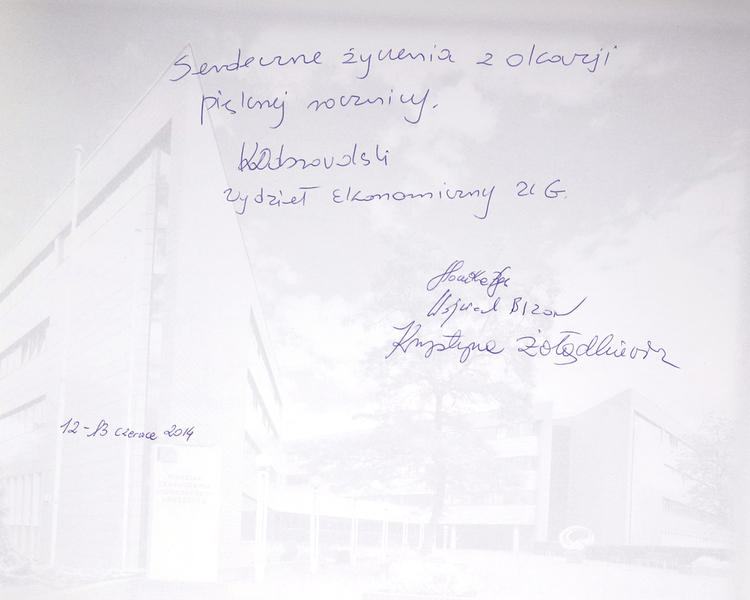 Serdeczne życzenia z okazji
pięknej rocznicy.
K Dobrowolski
Wydział Ekonomiczny UG.
Monika
Wojciech Bizon
Krystyna Żołądkiewicz
12-13 czerwca 2014